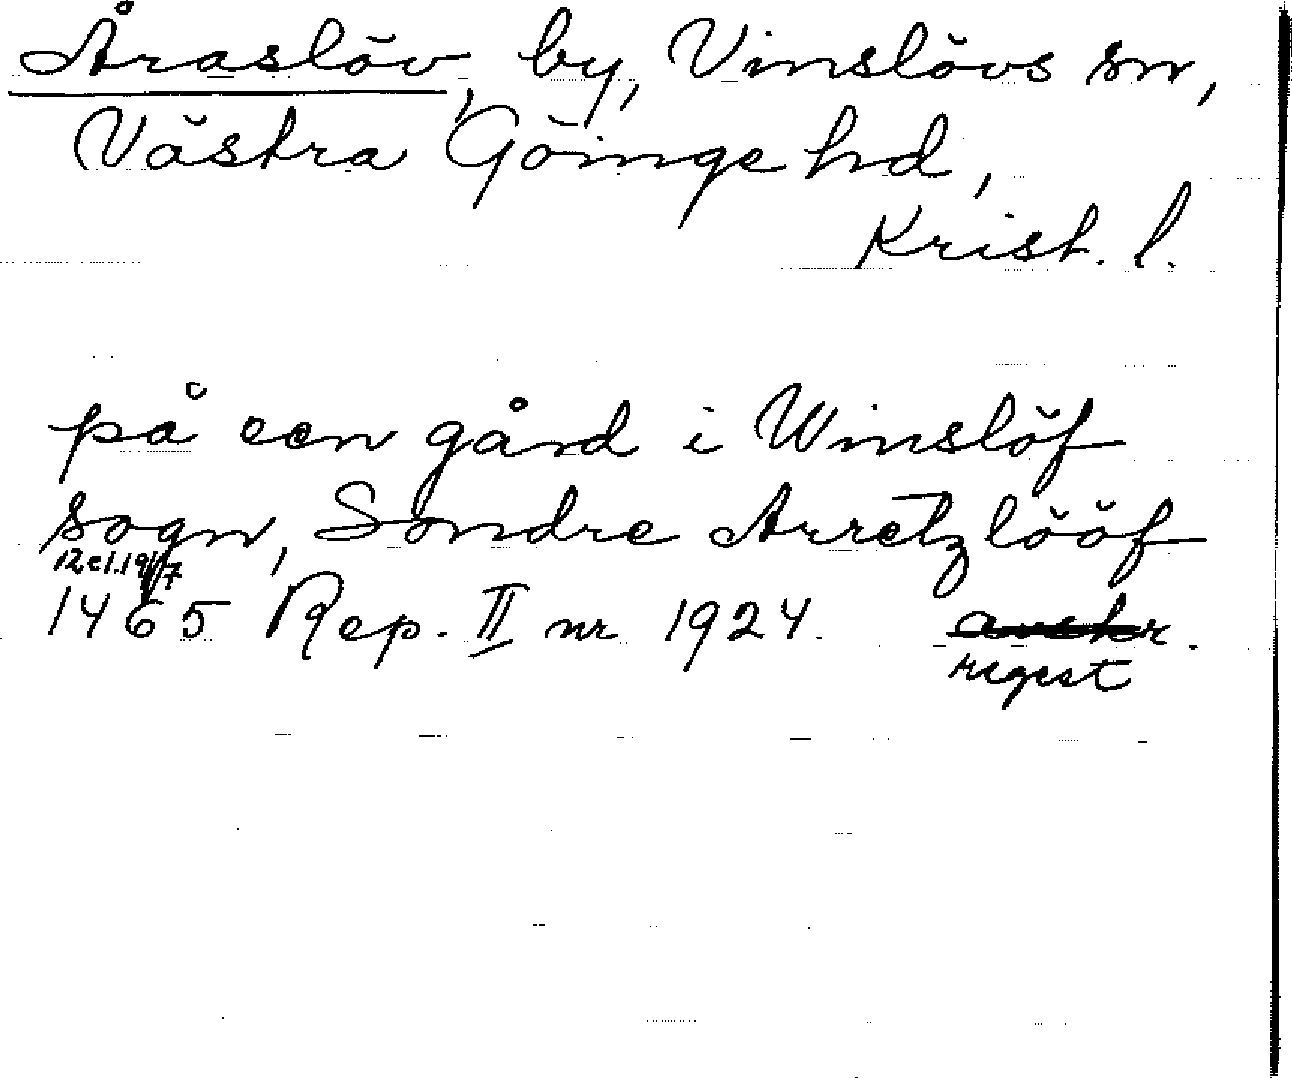 Åraslöv, by, Vinslövs sn,
Västra Göinge hd,
Krist. l.
på een gård i Winslöf
sogn, Sondre Arretzlööf
1465 Rep. II nr 1924. avskr.
regest